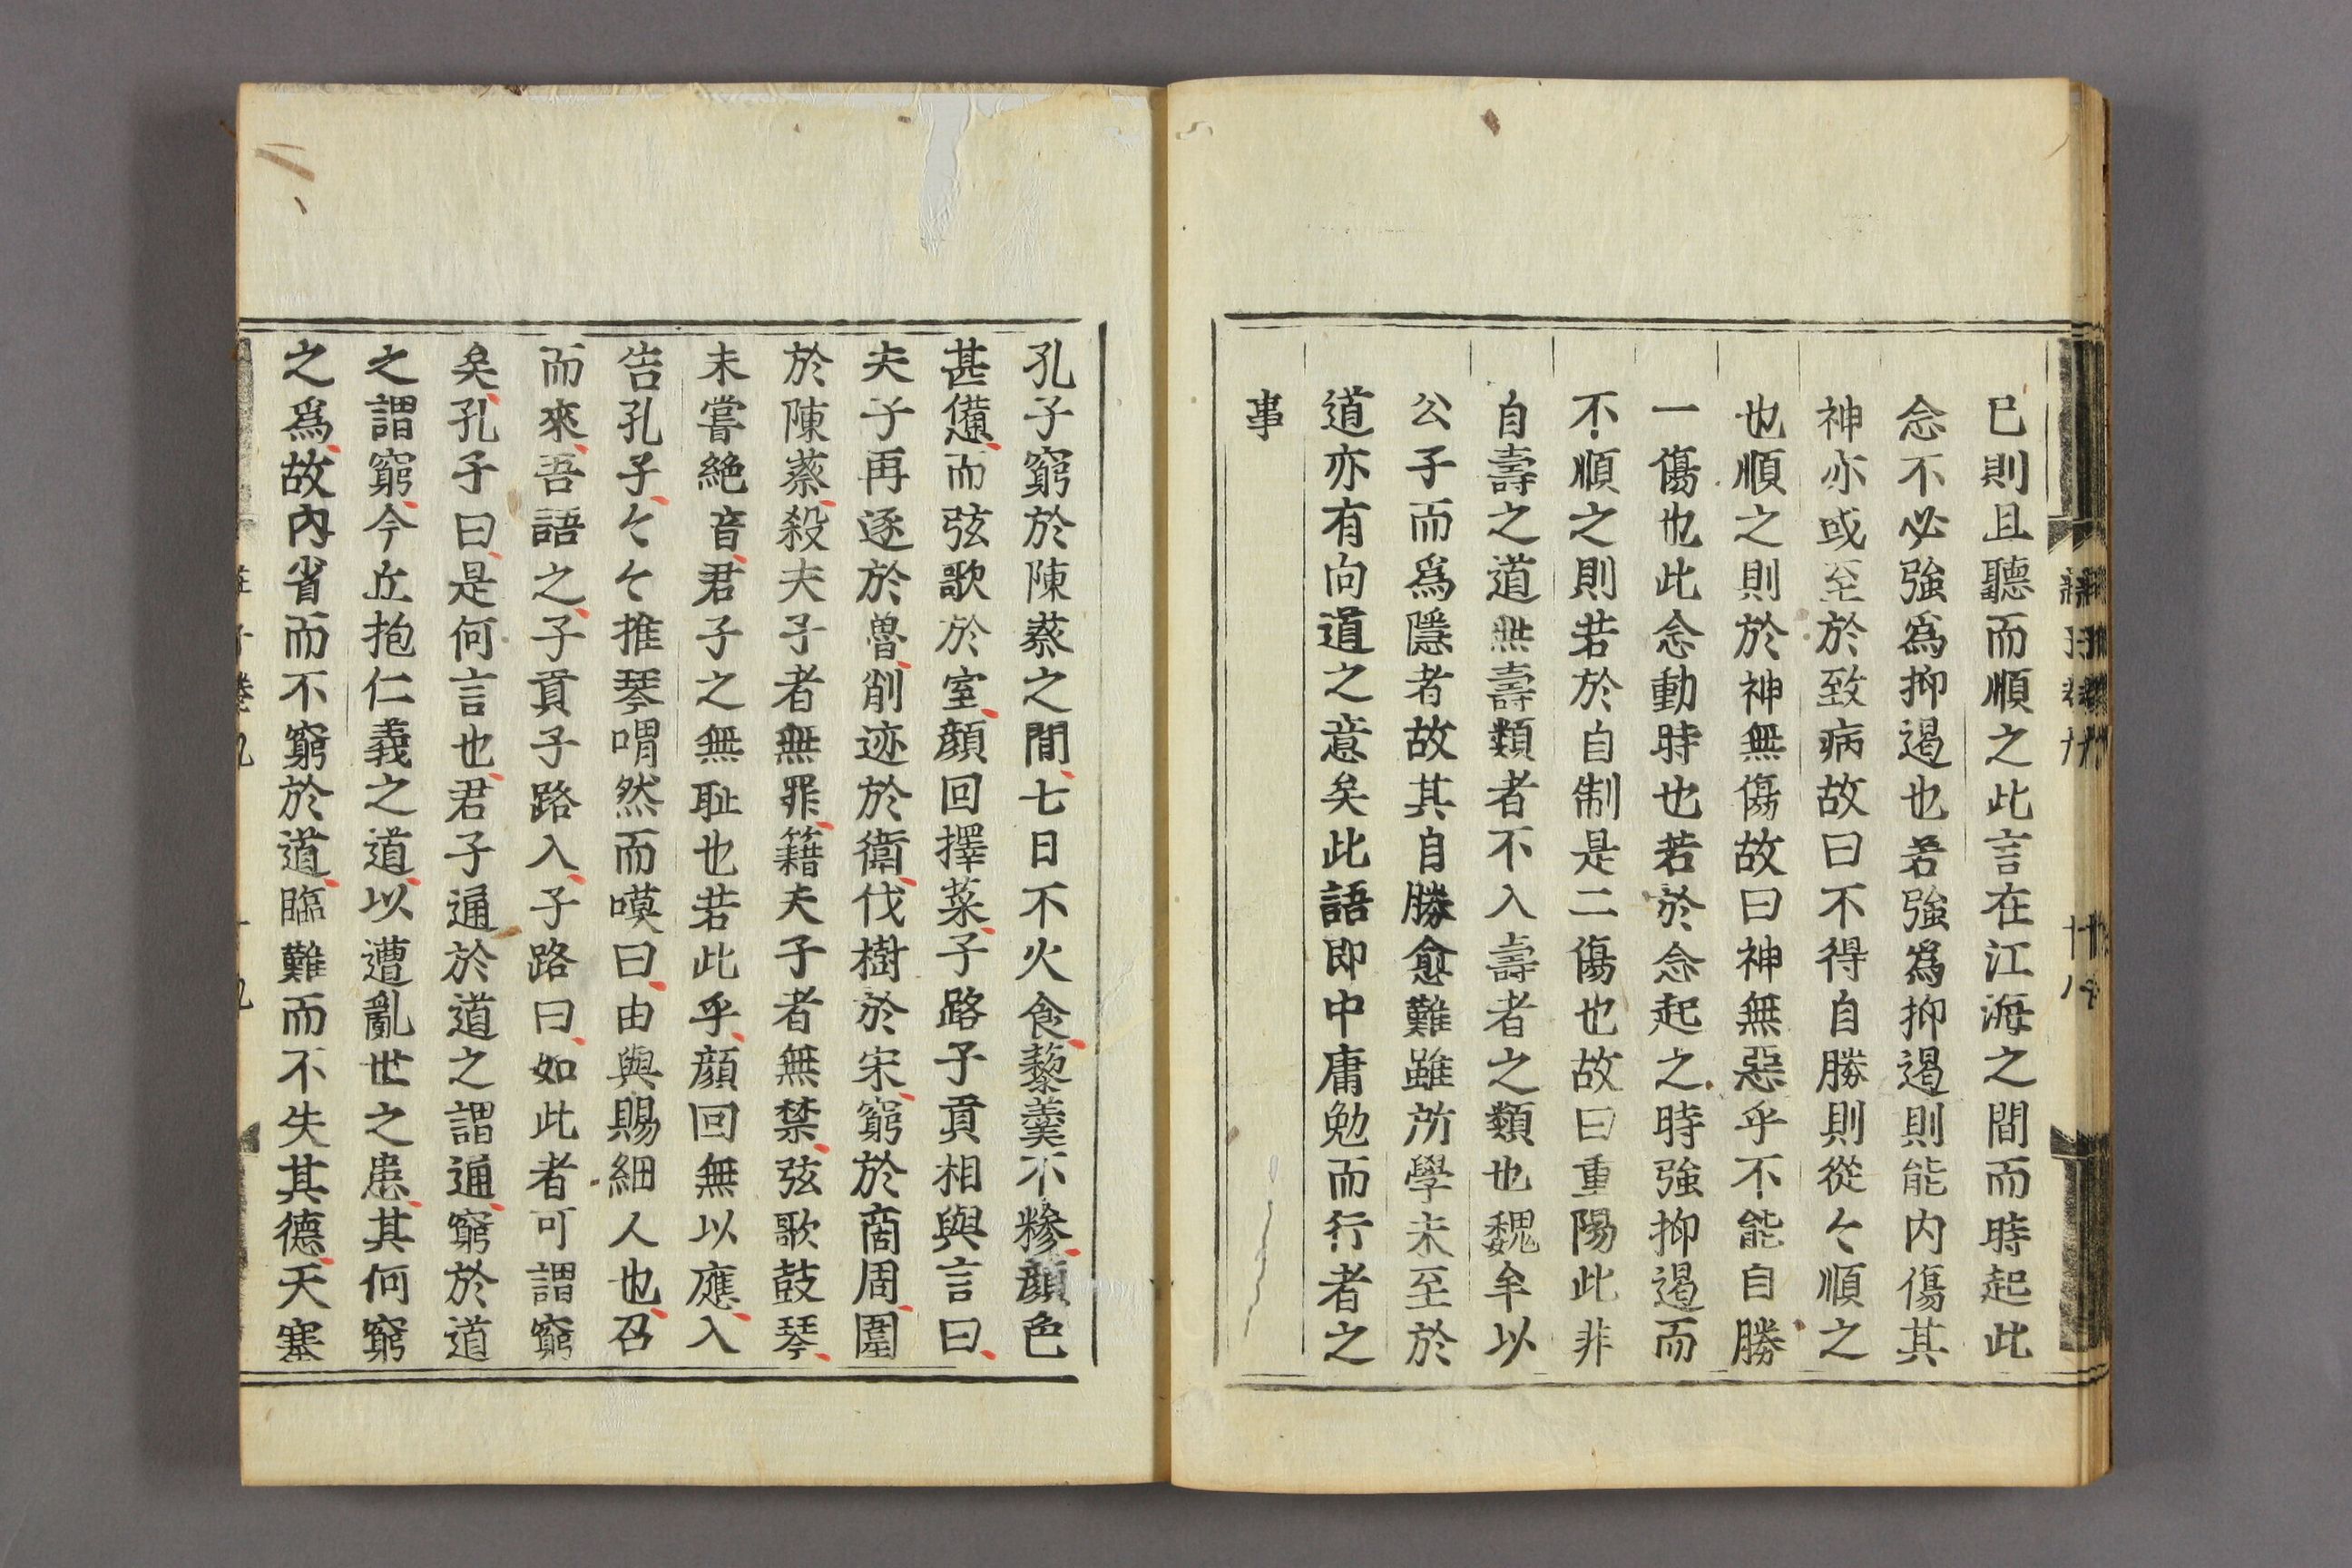 已則且聽而順之此言在江海之間而時起此
念不必強爲抑遏也若強爲抑遏則能內傷其
神亦或至於致病故曰不得自勝則從々順之
也順之則於神無傷故曰神無惡乎不能自勝
一傷也此念動時也若於念起之時強抑遏而
不順之則若於自制是二傷也故曰重陽此非
自壽之道無壽類者不入壽者之類也魏牟以
公子而爲隱者故其自勝愈難雖所學未至於
道亦有向道之意矣此語即中庸勉而行者之
事
孔子窮於陳蔡之間七日不火食藜羹不糝顔色
甚憊而弦歌於室顔回擇菜子路子貢相與言曰
夫子再逐於魯削迹於衛伐樹於宋窮於商周圍
於陳蔡殺夫子者無罪籍夫子者無禁弦歌鼓琴
未嘗絶音君子之無耻也若此乎顔回無以應入
告孔子々々推琴喟然而嘆曰由與賜細人也召
而來吾語之子貢子路入子路曰如此者可謂窮
矣孔子曰是何言也君子通於道之謂通窮於道
之謂窮今丘抱仁義之道以遭亂世之患其何窮
之爲故內省而不窮於道臨難而不失其德天寒